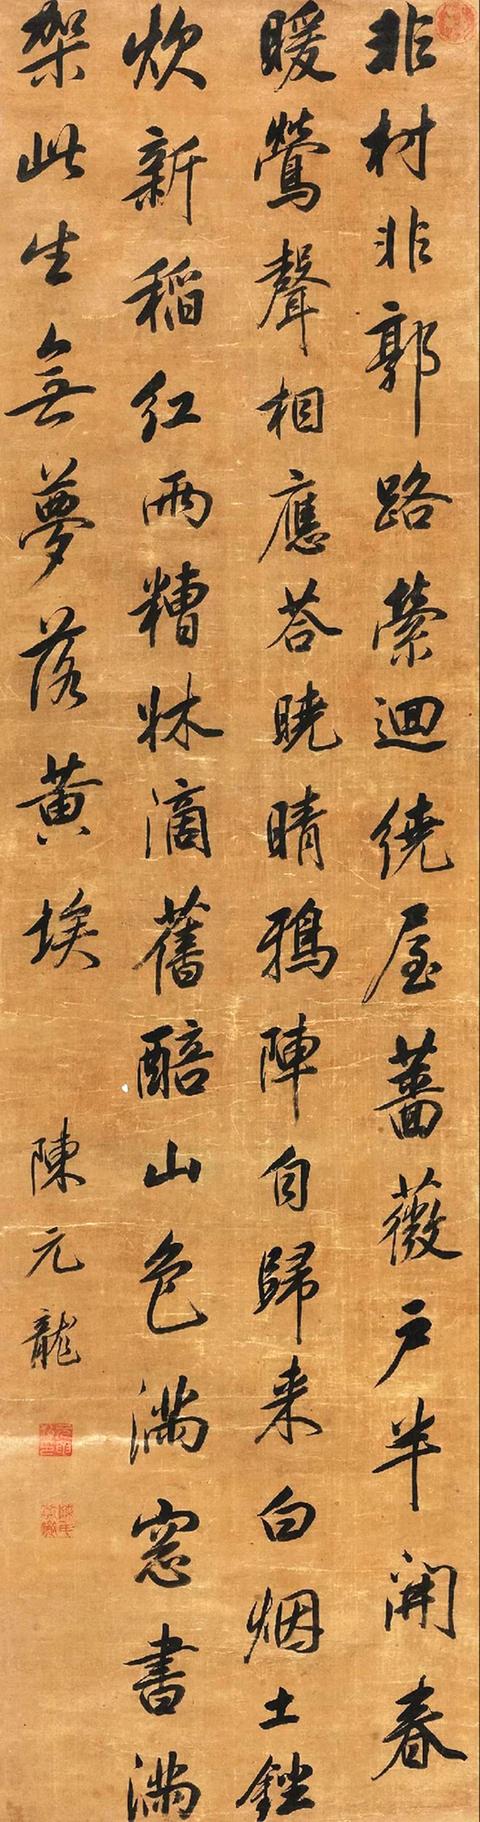 非村非郭路縈迴繞屋薔薇户半開春
暖鶯聲相應荅曉晴鴉陣自歸来白烟土銼
炊新稻紅雨糟牀滴舊醅山色滿窓書滿
架此生無夢落黄埃
陳元龍